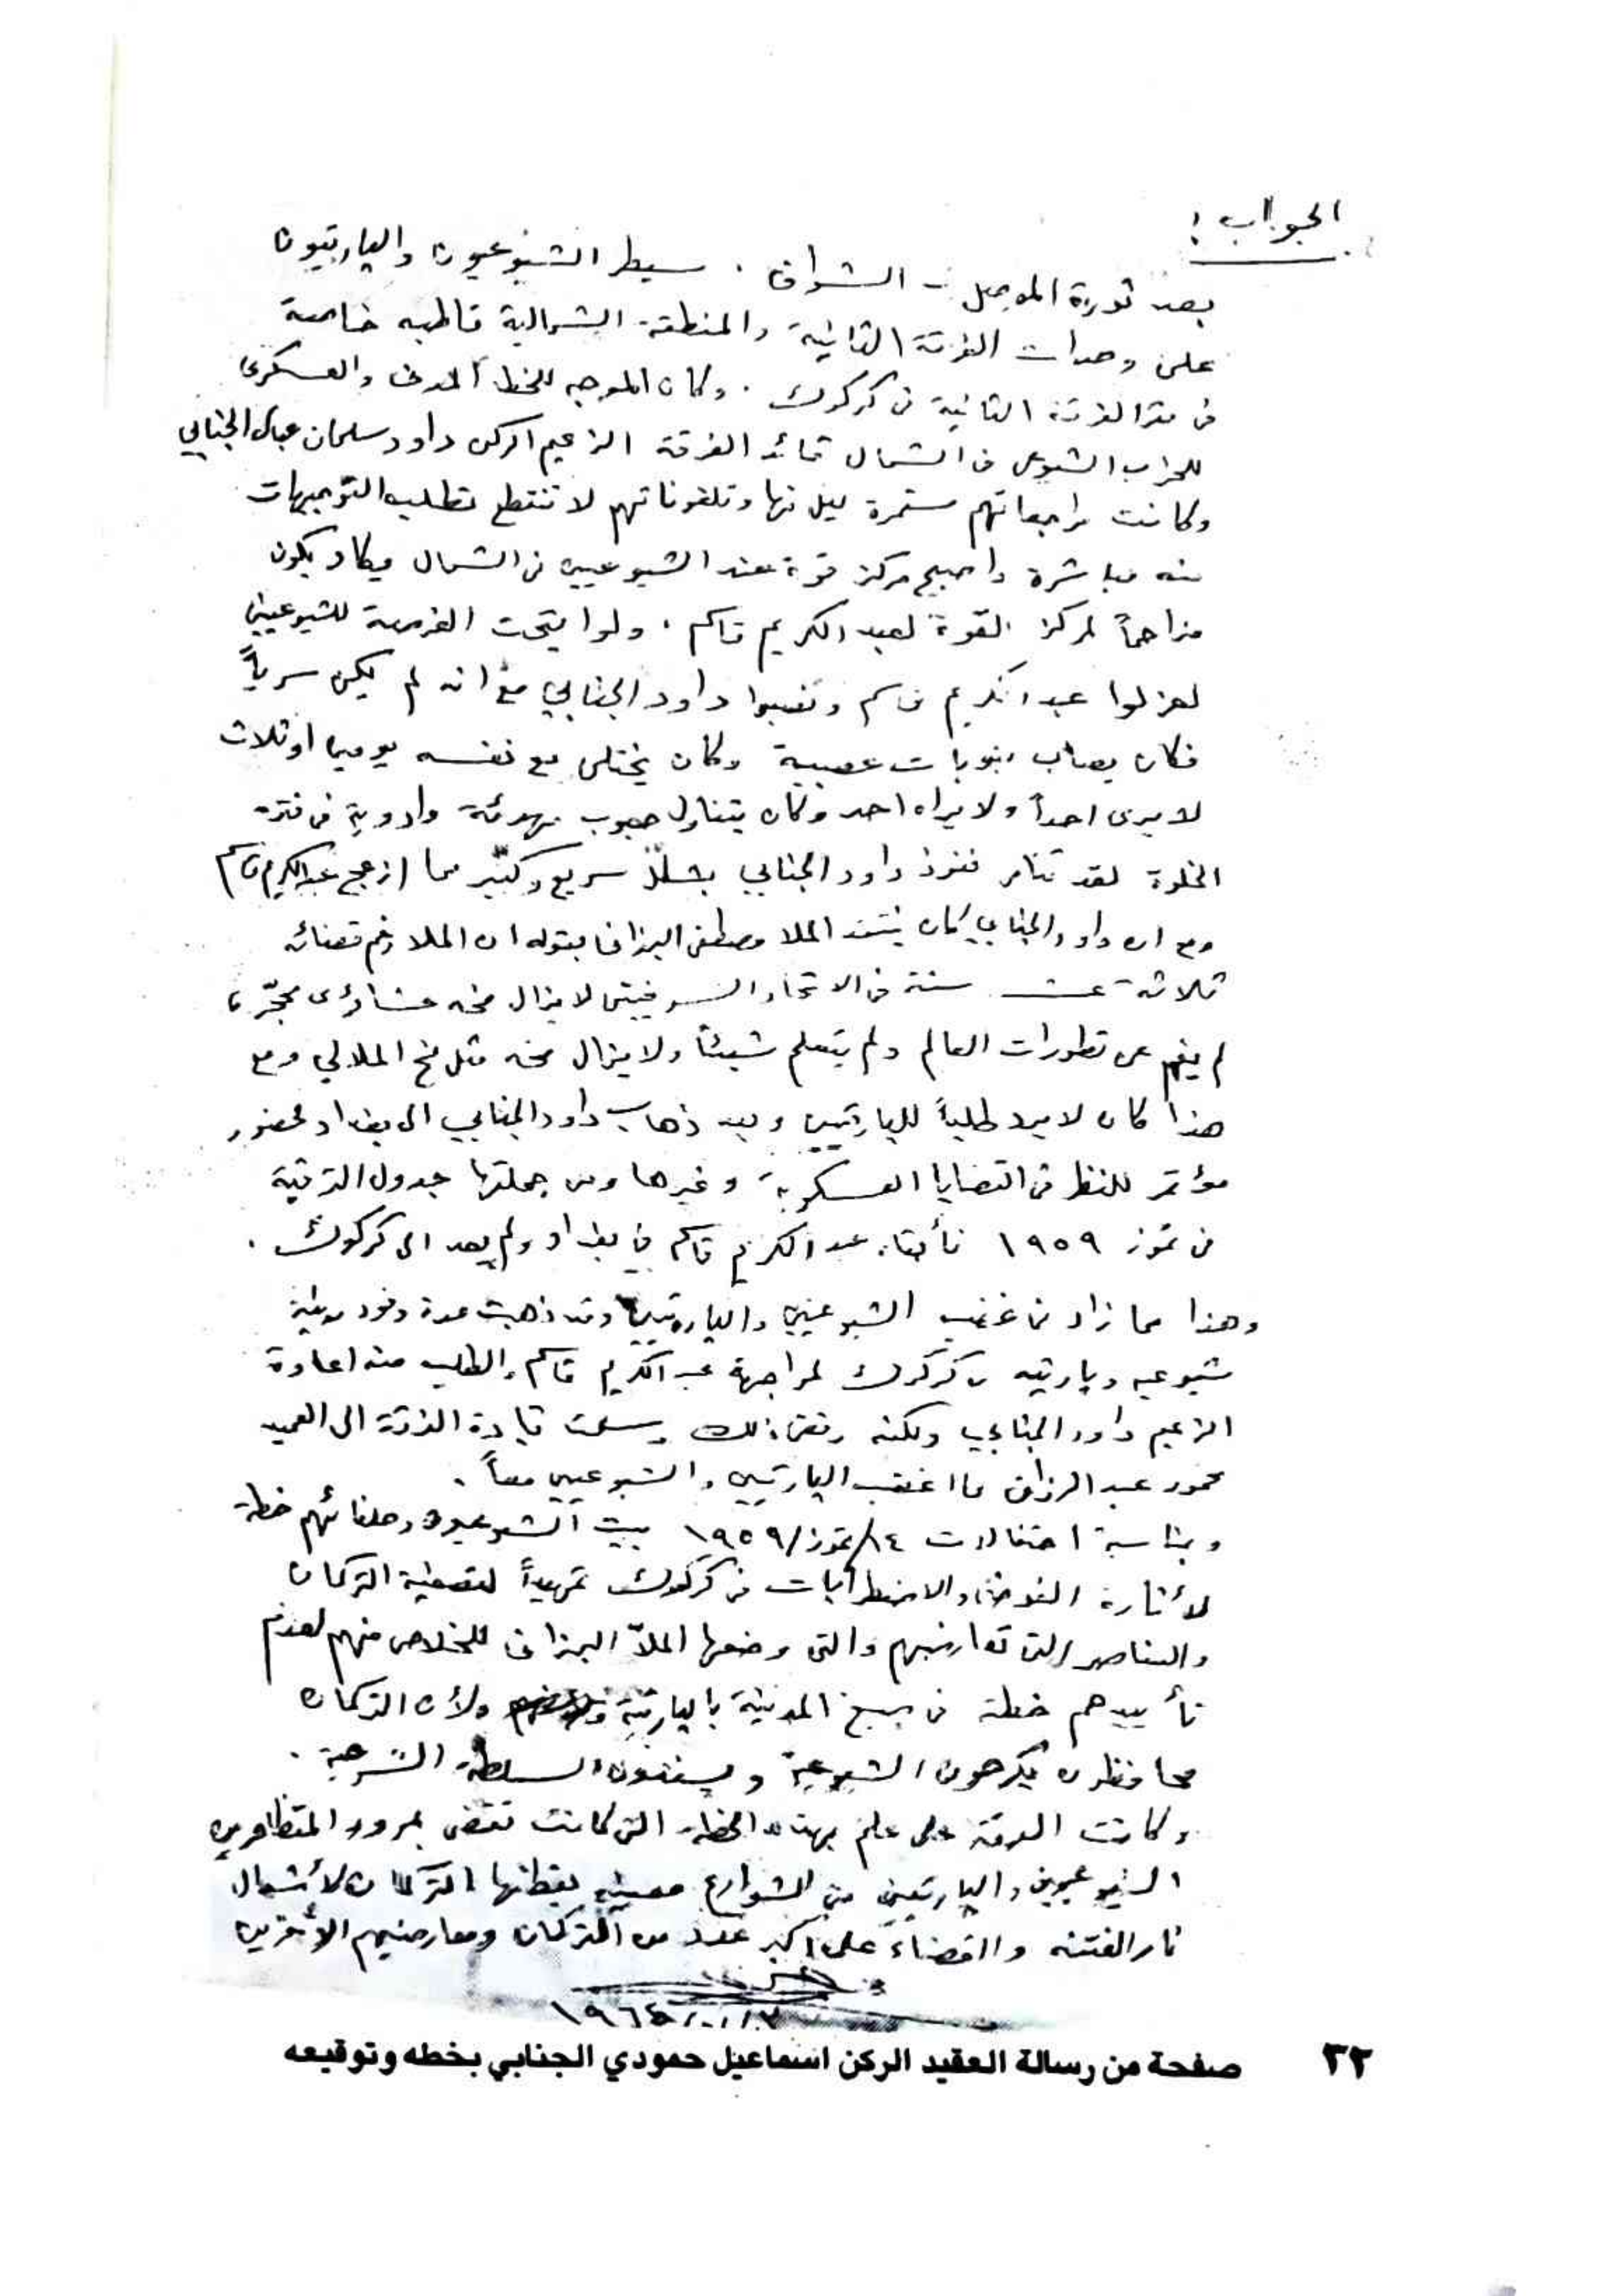 الجواب :
بعد ثورة الموصل - الشواف . سيطر الشيوعيون والبارتيون
على وحدات الفرقة الثانية والمنطقة الشمالية قاطبه خاصة
في مقر الفرقة الثانية في كركوك . وكان الموجه للخط المدني والعسكري
للحزب الشيوعي في الشمال قائد الفرقة الزعيم الركن داود سلمان عباس الجنابي
وكانت مراجعاتهم مستمرة ليل نهار وتلفوناتهم لا تنقطع تطلب التوجيهات
منه مباشرة واصبح مركز قوة عند الشيوعيين في الشمال ويكاد يكون
مزاحماً لمركز القوة لعبد الكريم قاسم . ولو اتيحت الفرصة للشيوعيين
لعزلوا عبد الكريم قاسم ونصبوا داود الجنابي مع انه لم يكن سوياً
فكان يصاب بنوبات عصبية وكان يختلي مع نفسه يومين او ثلاث
لا يرى احداً ولا يراه احد وكان يتناول حبوب مهدئة وادوية في فترة
الخلوة لقد تنامى نفوذ داود الجنابي بشكل سريع وكبير مما ازعج عبدالكريم قاسم
ومع ان داود الجنابي كان ينتقد الملا مصطفى البرزاني بقوله ان الملا رغم قضائه
ثلاثة عشر سنة في الاتحاد السوفيتي لا يزال مخه عشائري متحجّر
لم يفهم عن تطورات العالم ولم يتعلم شيئاً ولا يزال مخه مثل مخ الملالي ومع
هذا كان لا يرد طلباً للبارتيين وبعد ذهاب داود الجنابي الى بغداد لحضور
مؤتمر للنظر في القضايا العسكرية وغيرها ومن جملتها جدول الترقية
في تموز ١٩٥٩ فأبقاه عبد الكريم قاسم في بغداد ولم يعد الى كركوك .
وهذا مما زاد في غضب الشيوعيين والبارتيين وقد ذهبت عدة وفود مدنية
شيوعيه وبارتيه من كركوك لمراجهة عبد الكريم قاسم والطلب منه اعادة
الزعيم داود الجنابي ولكنه رفض ذلك وسلمت قيادة الفرقة الى العميد
محمود عبد الرزاق مما اغضب البارتيين والشيوعيين معاً .
وبمناسبة احتفالات ١٤/تموز/١٩٥٩ بيت الشيوعيون وحلفائهم خطة
لأثارة الفوضى والاضطرابات في كركوك تمهيداً لتصفية التركمان
والعناصر التي تعارضهم والتي وضعها الملاّ البرزاني للخلاص منهم لعدم
تأييدهم خطته في صبغ المدينة بالبارتية ولأن التركمان
محافظون يكرهون الشيوعية ويسندون السلطة الشرعية .
وكانت الفرقة على علم بهذه الخطة التي كانت تقضي بمرور المتظاهرين
الشيوعيين والبارتيين من الشوارع معينه يقطنها التركمان لأشعال
نار الفتنه والقضاء على اكبر عدد من التركمان ومعارضيهم الأخرين
صفحة من رسالة العقيد الركن اسماعيل حمودي الجنابي بخطه وتوقيعه
٣٢